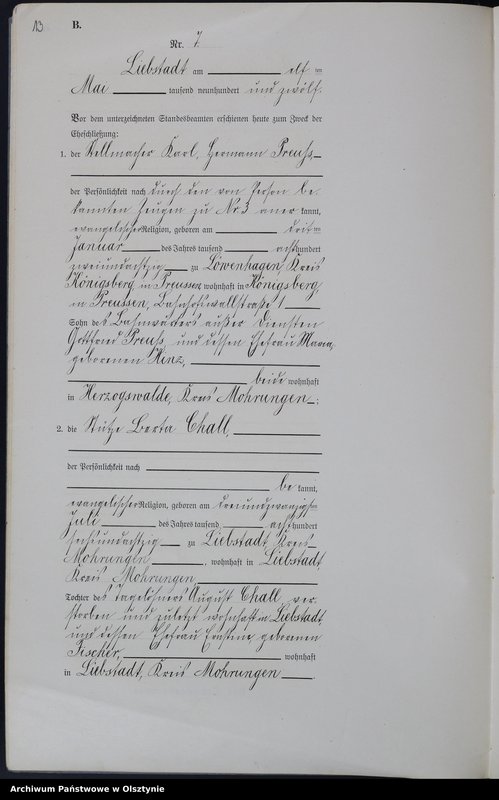 13
B.
Nr. 7.
Liebstadt am elf ten
Mai tausend neunhundert und zwölf.
Vor dem unterzeichneten Standesbeamten erschienen heute zum Zweck der
Eheschließung:
1. der Stellmacher Karl, Hermann Preuß,
der Persönlichkeit nach durch den von Person be-
kannten Zeugen zu Nr 3 aner kannt,
evangelischer Religion, geboren am dritten
Januar des Jahres tausend acht hundert
zweiundachtzig zu Löwenhagen, Kreis
Königsberg in Preussen, wohnhaft in Königsberg
in Preussen, Bahnhofswallstraße 1
Sohn des Bahnwärters außer Diensten
Gottfried Preuß und dessen Ehefrau Maria,
geborenen Hinz,
beide wohnhaft
in Herzogswalde, Kreis Mohrungen;
2. die Stütze Berta Chall,
der Persönlichkeit nach
be kannt,
evangelischer Religion, geboren am dreiundzwanzigsten
Juli des Jahres tausend acht hundert
sechsundachtzig zu Liebstadt, Kreis
Mohrungen, wohnhaft in Liebstadt,
Kreis Mohrungen
Tochter des Tagelöhners August Chall, ver-
storben und zuletzt wohnhaft in Liebstadt,
und dessen Ehefrau Ernstine geborenen
Fischer, wohnhaft
in Liebstadt, Kreis Mohrungen.
Archiwum Państwowe w Olsztynie